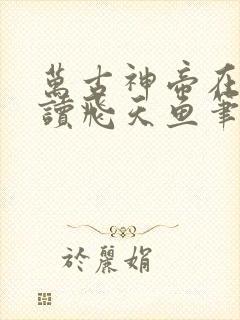 萬古神帝在
讀飛天魚筆
於麗娟